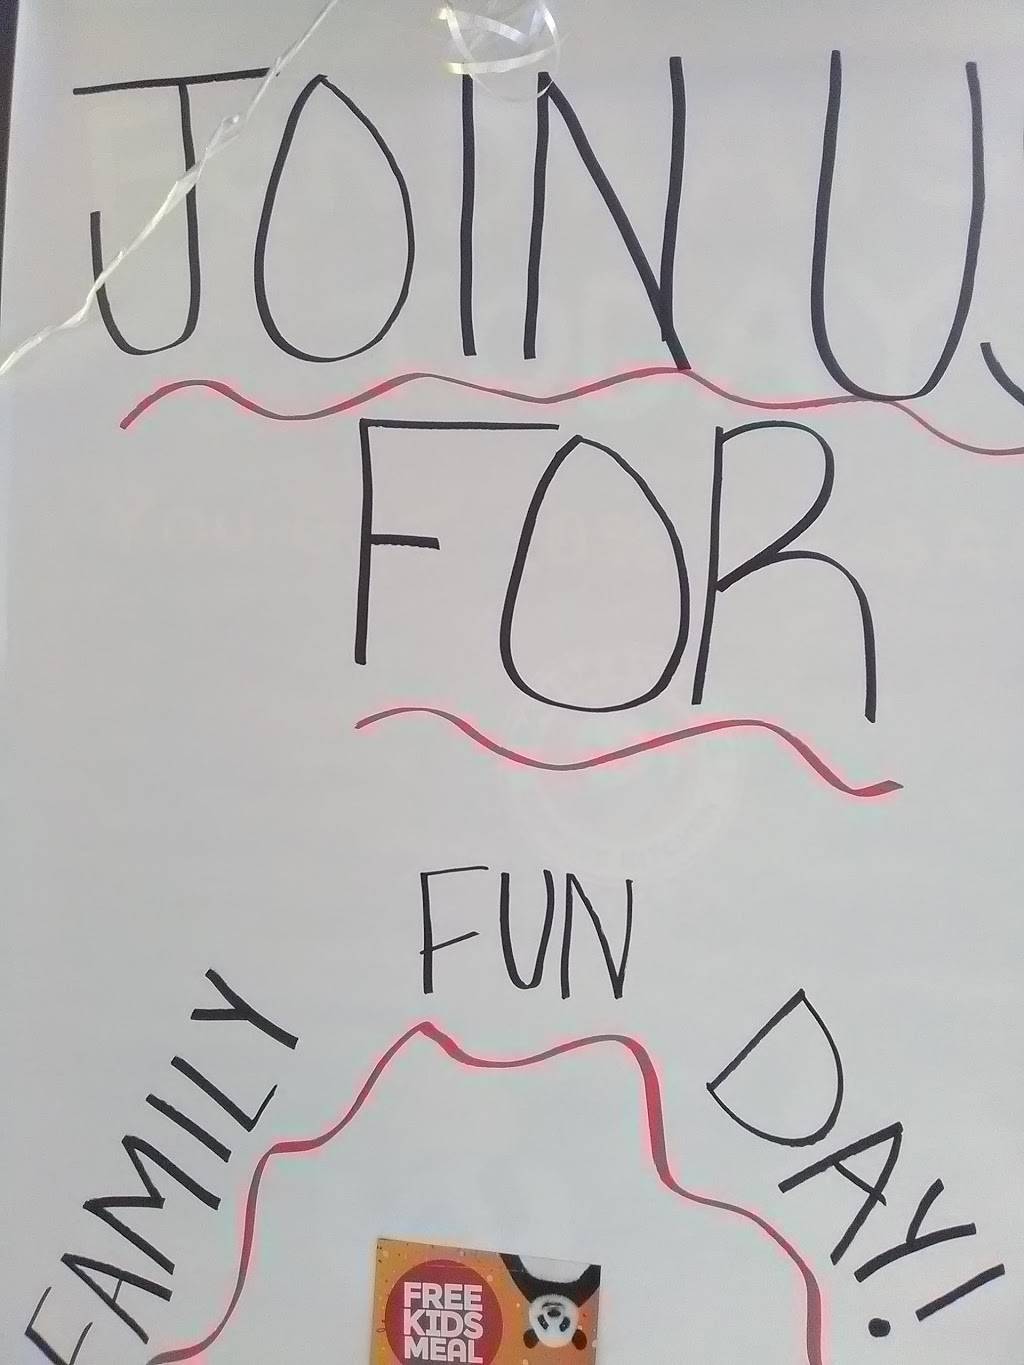 JOIN US
FOR
FAMILY FUN DAY!
FREE
KIDS
MEAL